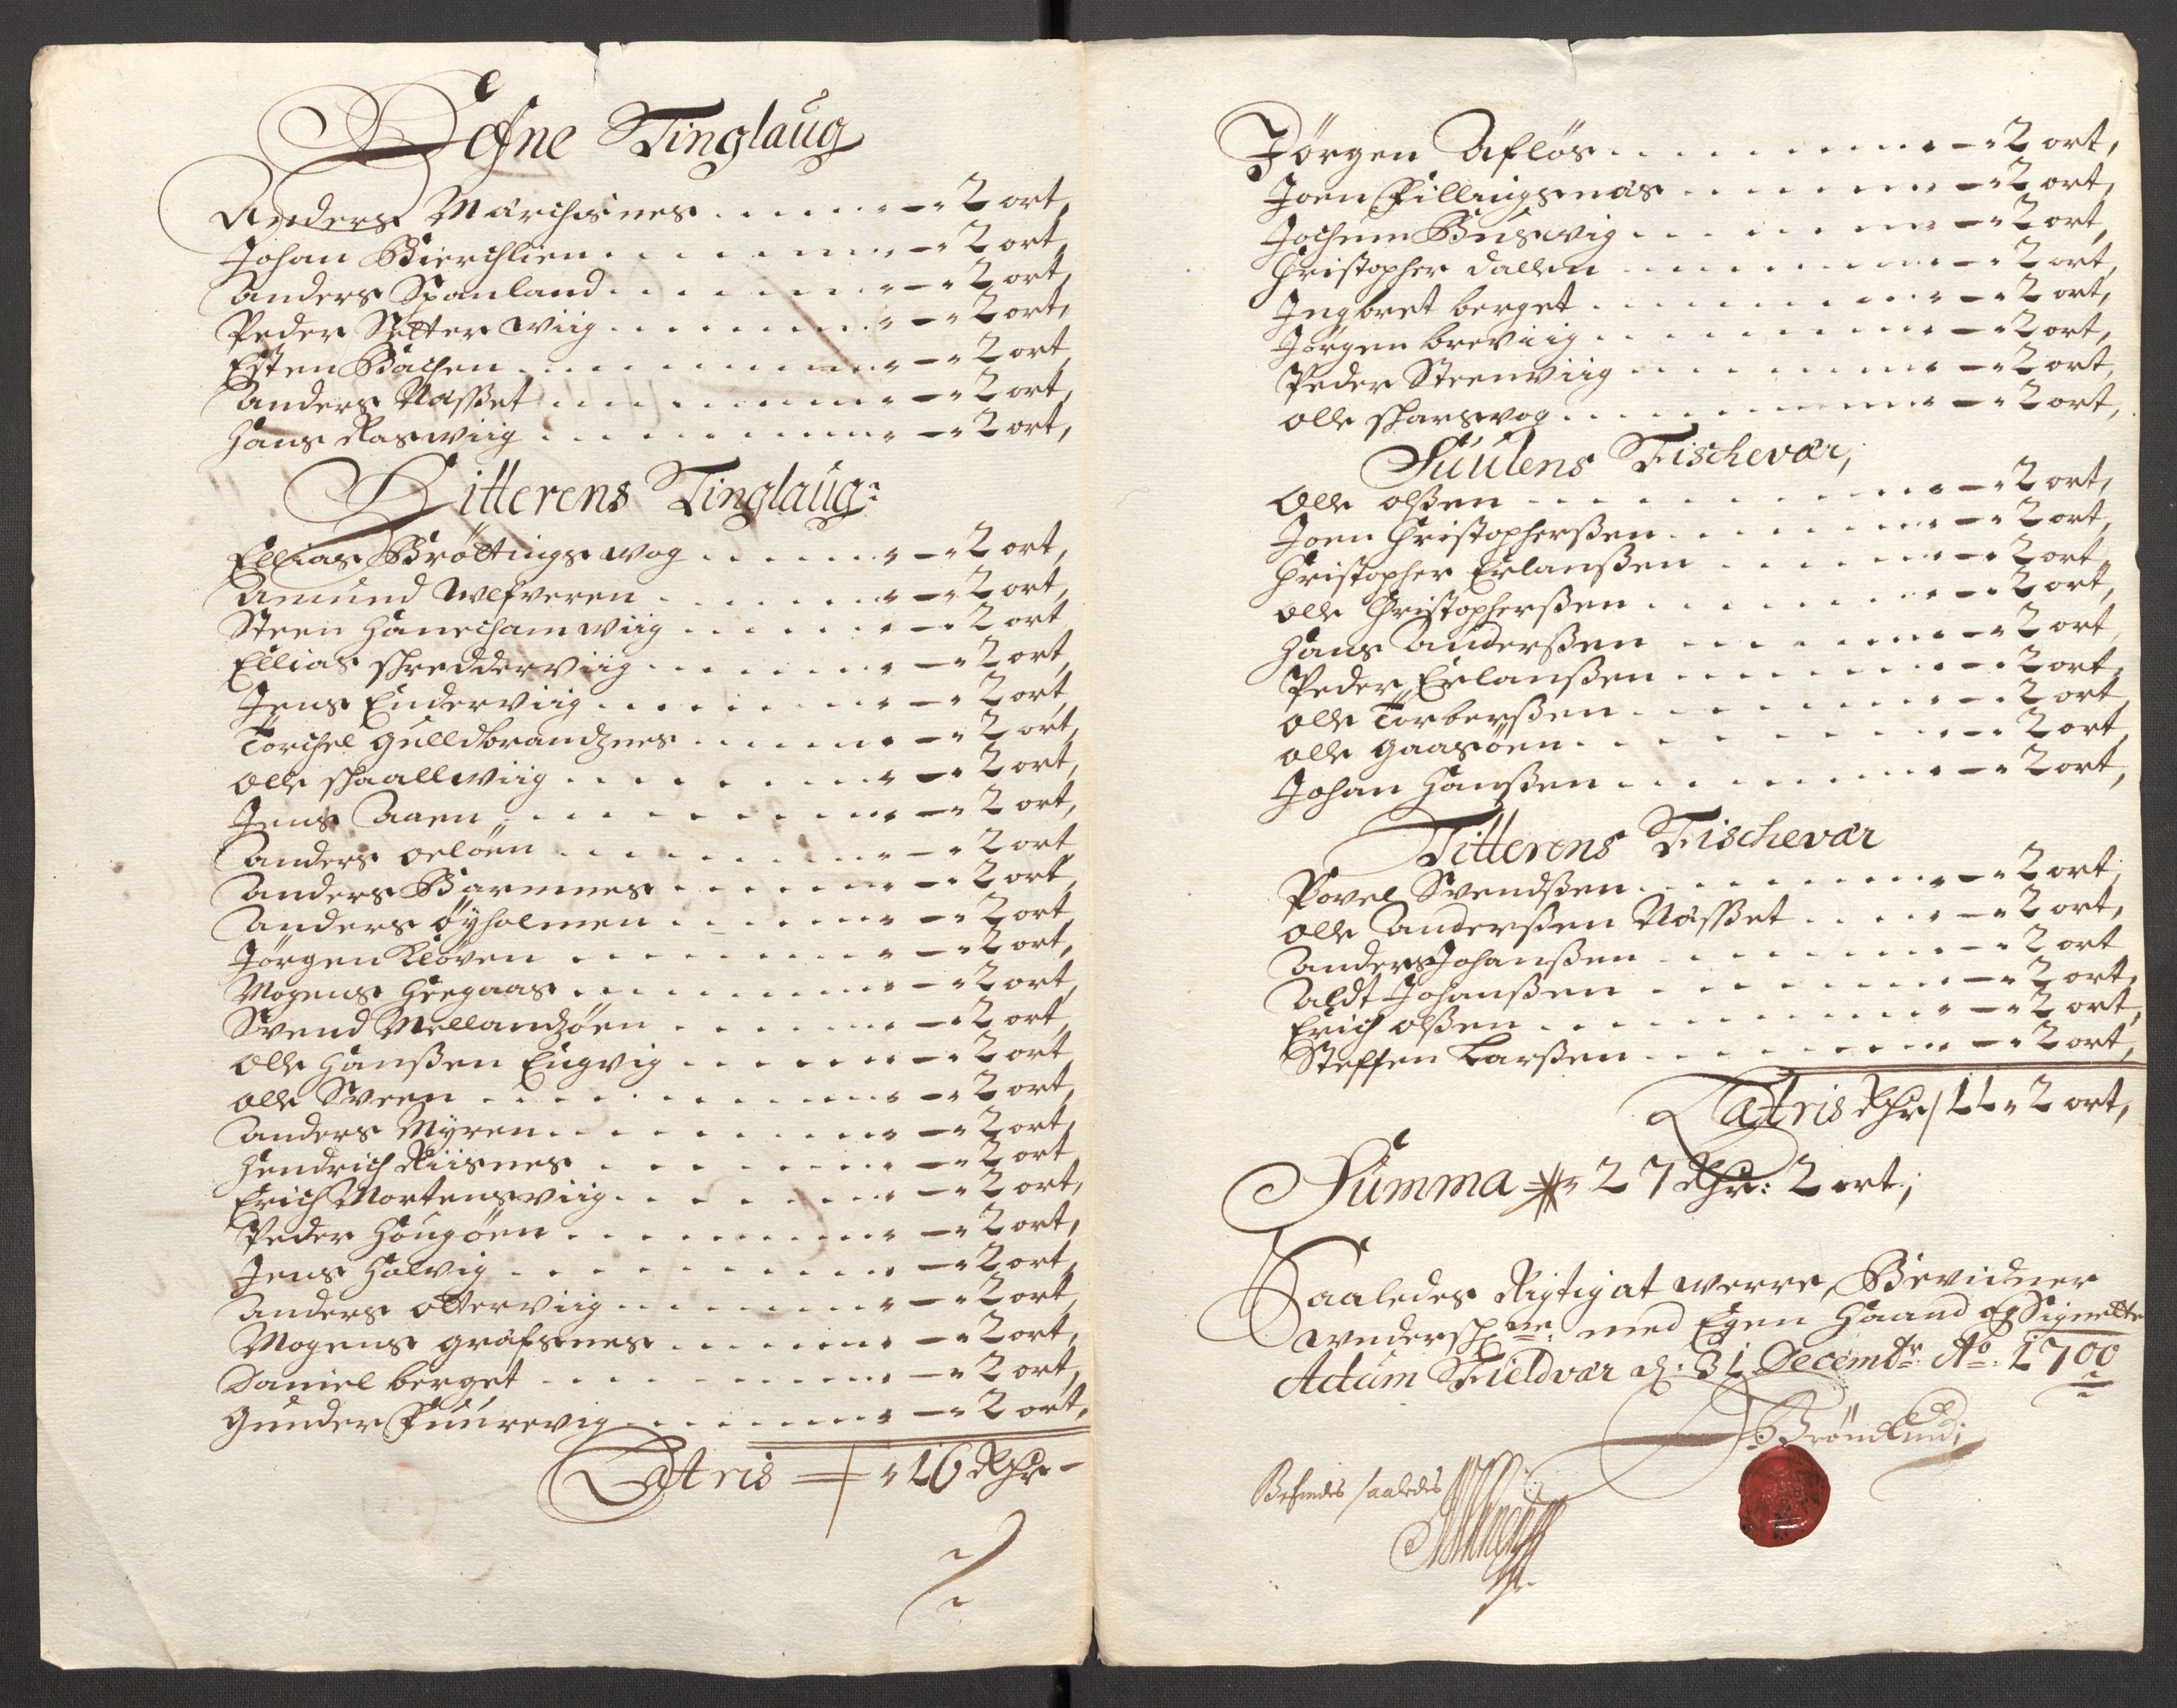 Hefne Tinglaug
Anders Marchsnes . . . . . . . – " 2 ort,
Johan Bierchlien . . . . . . . – " 2 ort,
Anders Spanland . . . . . . . – " 2 ort,
Peder Setter wiig . . . . . . . – " 2 ort,
Esten Bachen . . . . . . . – " 2 ort
Anders Næsset . . . . . . . – " 2 ort,
Hans Raswiig . . . . . . . – " 2 ort,
Hitterens Tinglaug:
Ellias Bröttings wog . . . . . . – " 2 ort,
Amund Welfveren . . . . . . . – " 2 ort,
Steen Hanechamwiig . . . . . . – " 2 ort
Ellias skredderviig . . . . . . – " 2 ort,
Jens Enderviig . . . . . . . – " 2 ort,
Törchel gulldbrandznes . . . . . – " 2 ort,
Olle skaallwiig . . . . . . . – " 2 ort,
Jens Aaen . . . . . . . – " 2 ort,
Anders oelöen . . . . . . . – " 2 ort
Anders Barmnes . . . . . . . – " 2 ort,
Anders öyholmen . . . . . . . – " 2 ort,
Jörgen Klöven . . . . . . . – " 2 ort,
Mogens Heegaas . . . . . . . – " 2 ort,
Svend Mellandzöen . . . . . . . – " 2 ort,
Olle Hanßen Eugvig . . . . . . . – " 2 ort
Olle Sveen . . . . . . . – " 2 ort,
Anders Myren . . . . . . . – " 2 ort,
Hendrich Riisnes . . . . . . . – " 2 ort
Erich Mortensviig . . . . . . . – " 2 ort,
Peder Hougöen . . . . . . . – " 2 ort,
Jens Halvig . . . . . . . – " 2 ort,
Anders otterviig . . . . . . . – " 2 ort,
Mogens grafsnes . . . . . . . – " 2 ort,
Daniel berget . . . . . . . – " 2 ort,
Gunder Fuurevig . . . . . . . – " 2 ort,
Latris " 16 Rdr –
Jörgen Aflös . . . . . . . – " 2 ort,
Joen Fillingsnæs . . . . . . . – " 2 ort,
Jochum Buswig . . . . . . . – " 2 ort,
Christopher dallen . . . . . . . – " 2 ort,
Ingbret berget . . . . . . . – " 2 ort,
Jörgen breviig . . . . . . . – " 2 ort,
Peder Steenviig . . . . . . . – " 2 ort,
Olle skarsvog . . . . . . . – " 2 ort,
Suulens Fischevær,
Olle olßen . . . . . . . – " 2 ort,
Joen Christopherßen . . . . . . . – " 2 ort,
Christopher Erlanßen . . . . . . . – " 2 ort
Olle Christopherßen . . . . . . . – " 2 ort,
Hans Anderßen . . . . . . . – " 2 ort
Peder Erlanßen . . . . . . . – " 2 ort,
Olle Torberßen . . . . . . . – " 2 ort
Olle gaasöen . . . . . . . – " 2 ort,
Johan Hanßen . . . . . . . – " 2 ort,
Titterens Fischevær
Povel Svendßen . . . . . . . – " 2 ort,
Olle Anderßen Næsset . . . . . – " 2 ort,
Anders Johanßen . . . . . . . – " 2 ort
Aldt Johanßen . . . . . . . – " 2 ort,
Erich olßen . . . . . . . – " 2 ort,
Steffen Larßen . . . . . . . – " 2 ort,
Latris Rdr 11 " 2 ort,
Summa " 27 Rdr: 2 ort,
Saaledes Rigtig at werre, Bevidner
med Egen Haand og Signette
Actum Fieldvær d: 31 Decembr: Ao: 1700
Befindes saaledes